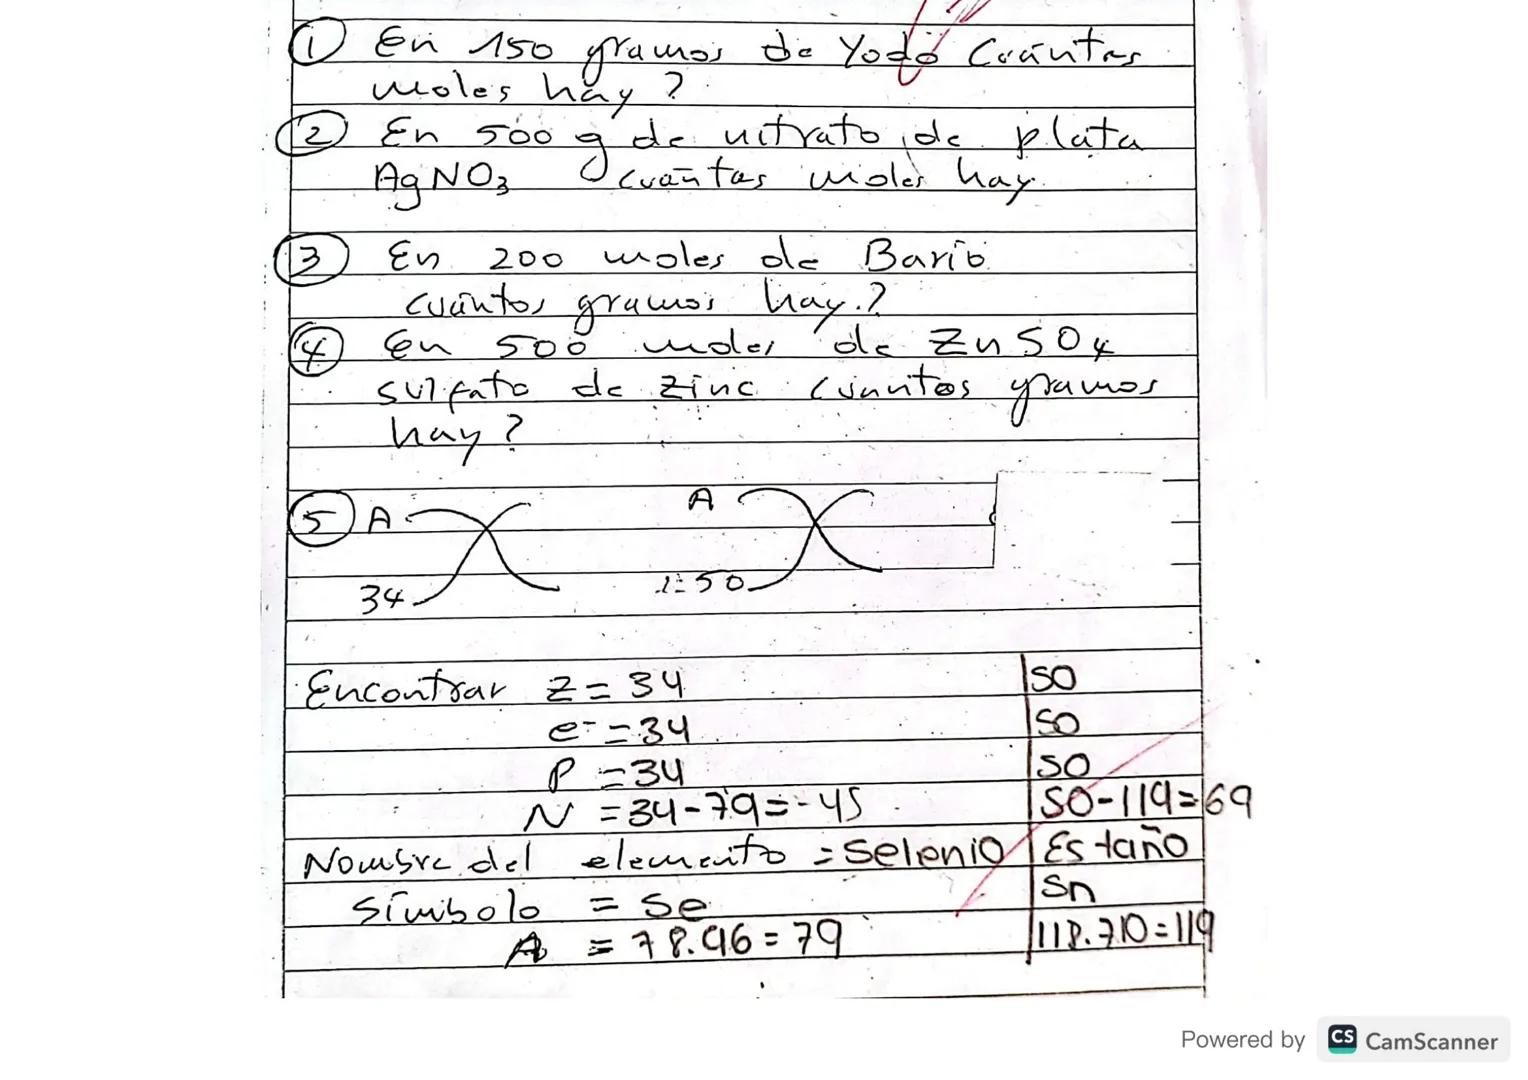 1 En 150 gramos de Yodo Cuántas
moles hay?
2 En 500 g de nitrato de plata
AgNO3 cuántas moles hay.
3 En 200 moles de Bario
cuántos gramos hay.?
4 En 500 moles de ZnSO4
sulfato de zinc cuántos gramos
hay?
5 A A
34 Z=50
Encontrar Z = 34 50
e- = 34 50
P = 34 50
N = 34-79=-45 50-119=69
Nombre del elemento = Selenio Estaño
símbolo = Se Sn
A = 78.96=79 118.710=119
Powered by CS CamScanner